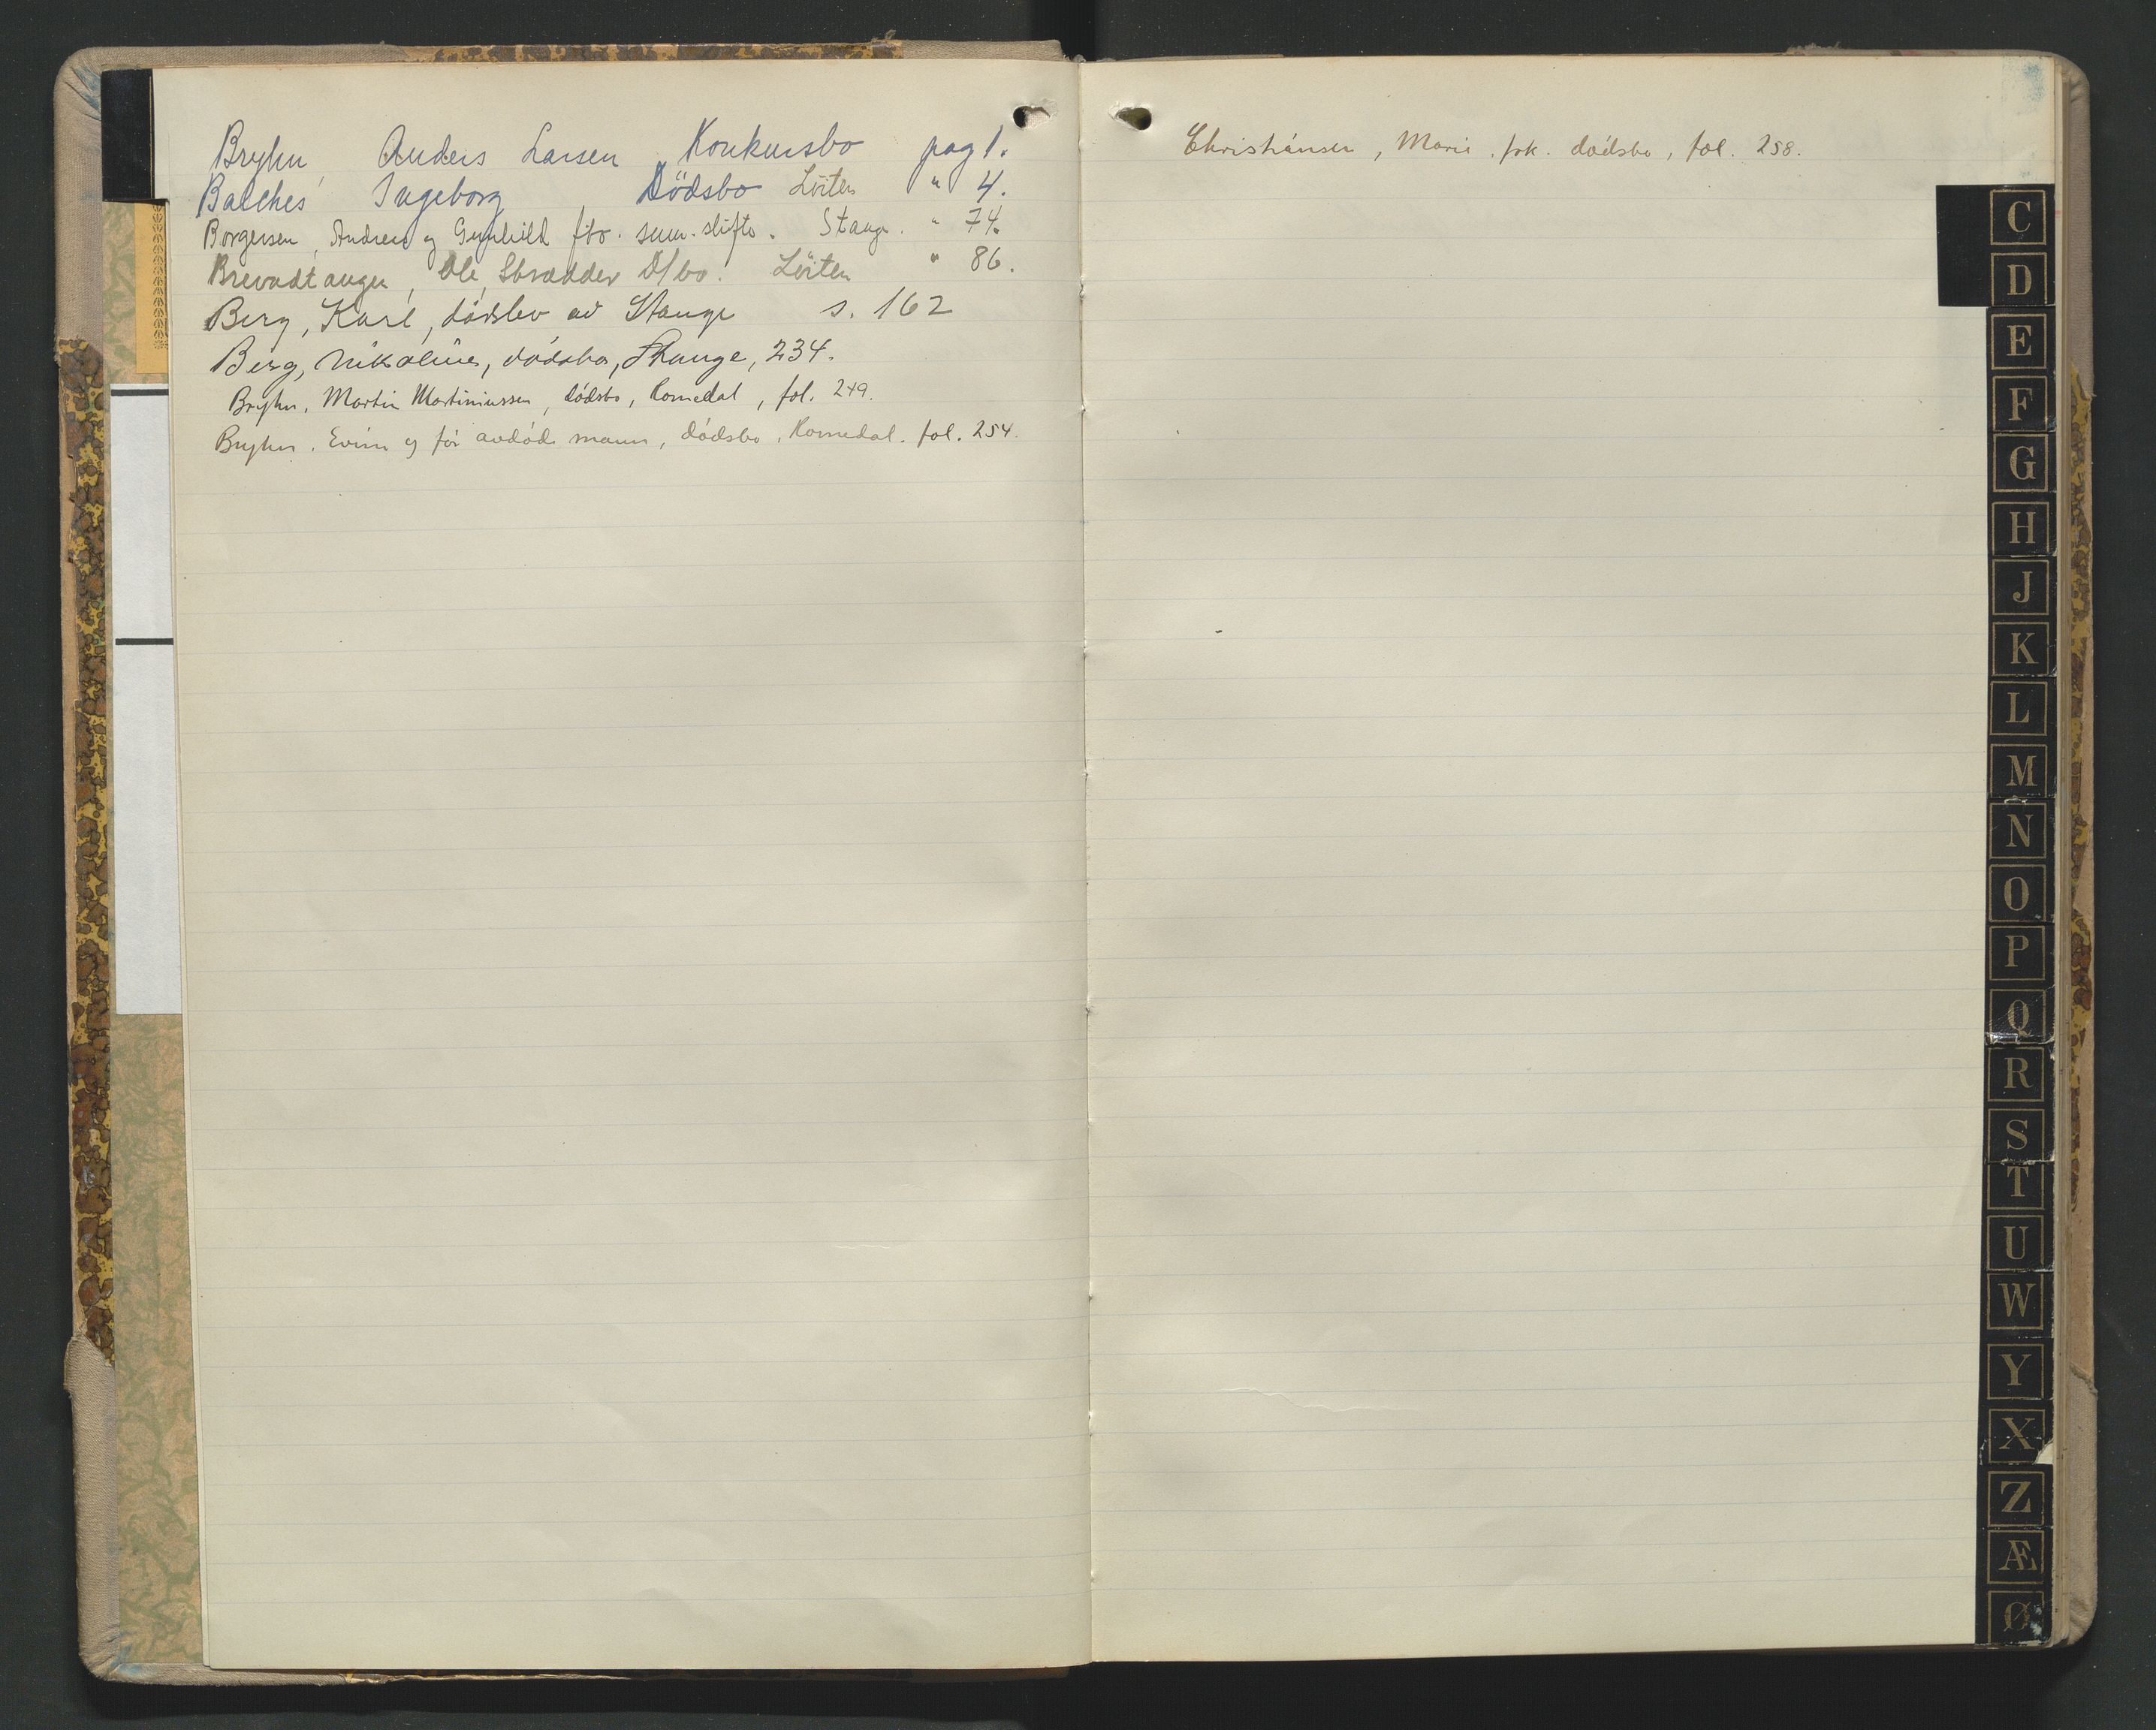 Bryhn, Anders Larsen Konkursbo pag 1.
Balches Ingeborg Dödsbo Löiten " 4.
Borgersen, Andreas og Gunhild f/bo. sum. skifte. Stange. " 74.
Brevadtangen, Ole, Skrædder D/bo. Löiten " 86.
Berg, Karl, dödsbo av Stange s. 162
Berg, Nikoline, dödsbo, Stange, 234.
Bryhn, Martin Martiniussen, dödsbo, Romedal, fol. 249.
Bryhn. Evine og för avdöde mann, dödsbo, Romedal. fol. 254.
Christiansen, Marie. frk. dödsbo, fol. 258.
C
D
E
F
G
H
J
K
L
M
N
O
P
Q
R
S
T
U
W
Y
X
Z
Æ
Ø